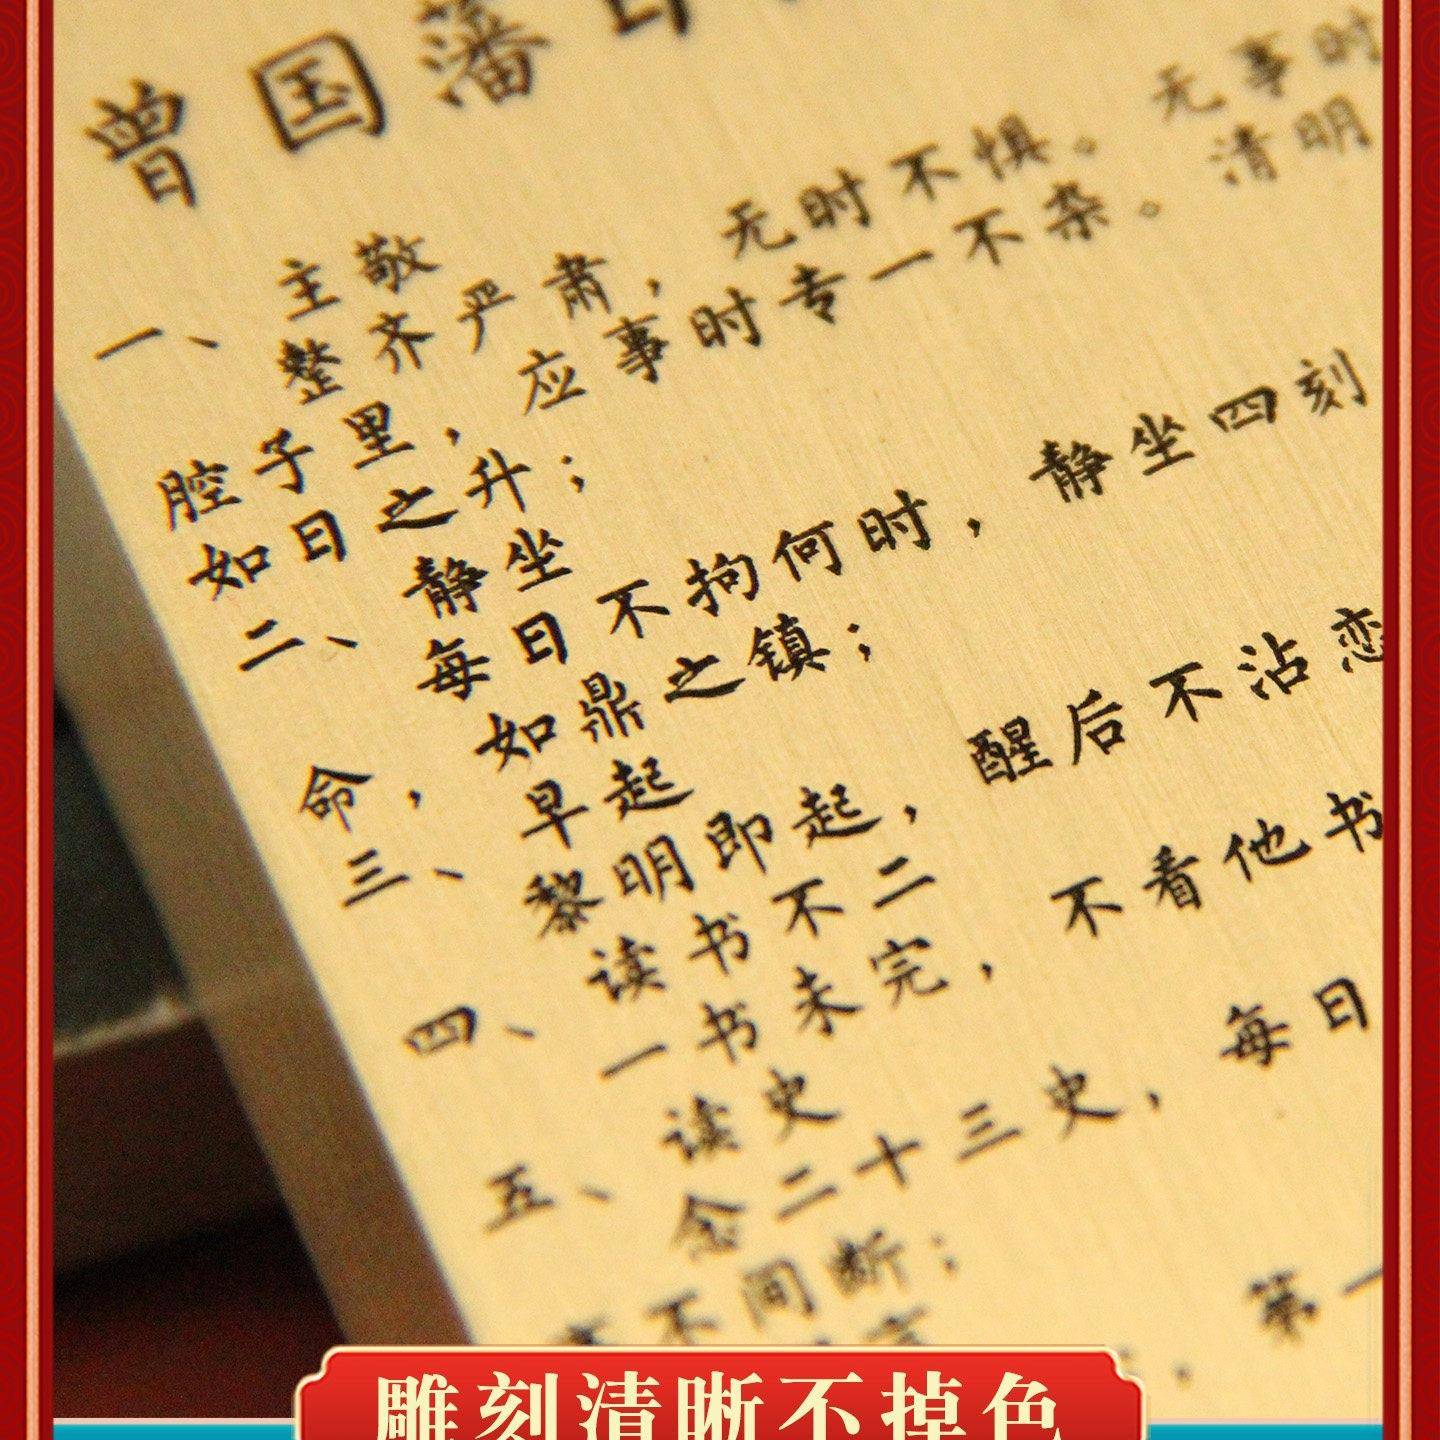 曾国藩日
一、主敬
整齐严肃，无时不惧。无事时
腔子里，应事时专一不杂。清明
如日之升；
二、静坐
每日不拘何时，静坐四刻
命，如鼎之镇；
三、早起
黎明即起，醒后不沾恋
四、读书不二
一书未完，不看他书
五、读史
念二十三史，每日
不间断；
第一
雕刻清晰不掉色